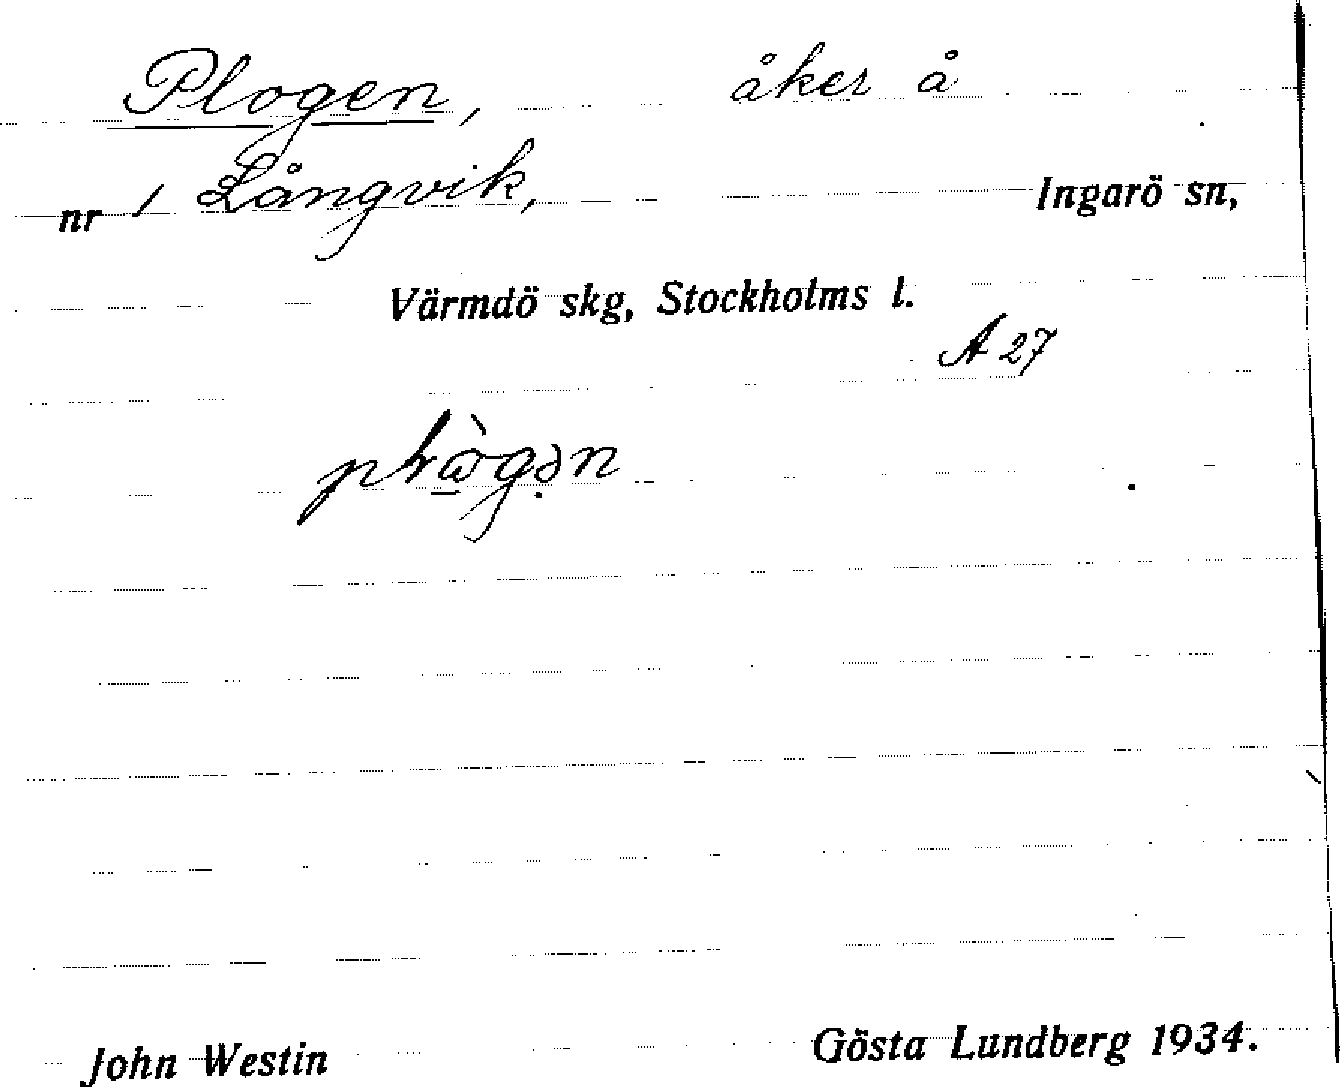 Plogen, åker å
nr 1 Långvik, Ingarö sn,
Värmdö skg, Stockholms l.
A 27
John Westin Gösta Lundberg 1934.